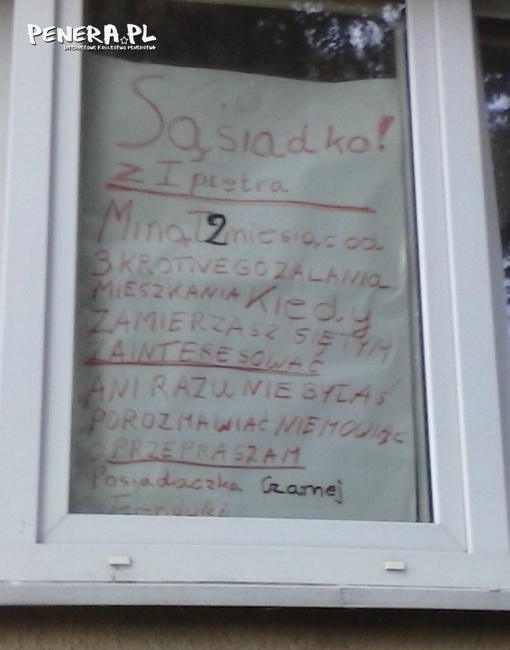 PENERA.PL
Sąsiadko!
Z I piętra
Minął 2 miesiąc od
3 KROTNEGO ZALANIA
MIESZKANIA Kiedy
ZAMIERZASZ SIĘ TYM
ZAINTERESOWAĆ
ANI RAZU NIE BYŁAŚ
POROZMAWIAĆ NIE MÓWIĄC
O PRZEPRASZAM
Posiadaczka Czarnej